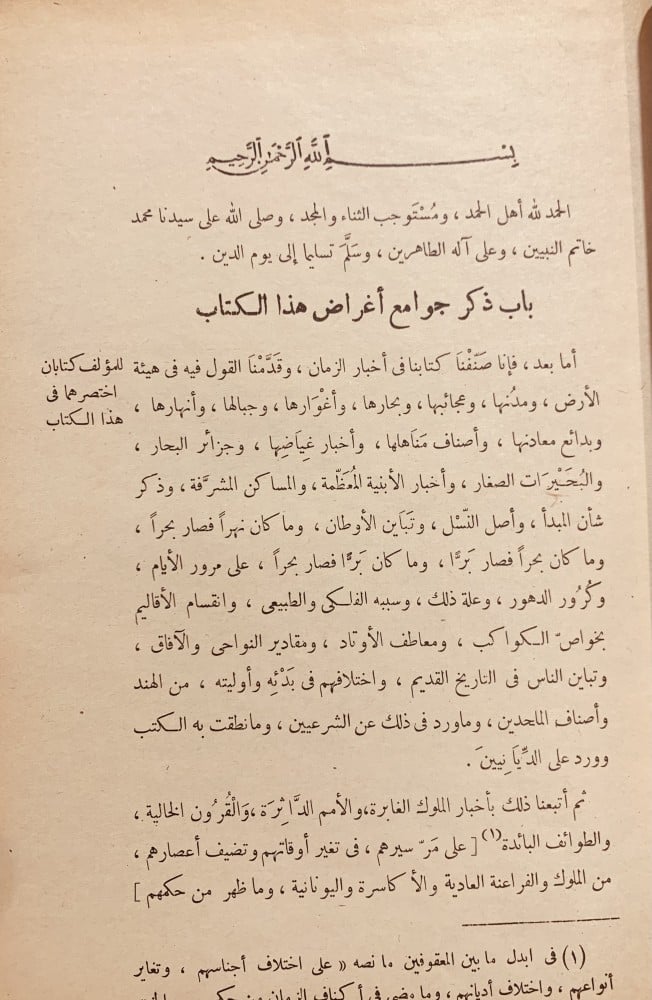 بسم الله الرحمن الرحيم
الحمد لله أهل الحمد ، ومُسْتَوجب الثناء والمجد ، وصلى الله على سيدنا محمد
خاتم النبيين ، وعلى آله الطاهرين ، وسَلَّمَ تسليما إلى يوم الدين .
باب ذكر جوامع أغراض هذا الكتاب
أما بعد ، فإنا صَنَّفْنَا كتابنا فى أخبار الزمان ، وقَدَّمْنَا القول فيه فى هيئة
الأرض ، ومدُنها ، وعجائبها ، وبحارها ، وأغْوَارها ، وجبالها ، وأنهارها ،
وبدائع معادنها ، وأصناف مَنَاهلها ، وأخبار غِيَاضِها ، وجزائر البحار ،
والبُحَيْرَات الصغار ، وأخبار الأبنية المُعَظَّمة ، والمساكن المشرَّفة ، وذكر
شأن المبدأ ، وأصل النَّسْل ، وتَبَاين الأوطان ، وما كان نهراً فصار بحراً ،
وما كان بحراً فصار بَرًّا ، وما كان بَرًّا فصار بحراً ، على مرور الأيام ،
وكُرُور الدهور ، وعلة ذلك ، وسببه الفلكى والطبيعى ، وانقسام الأقاليم
بخواصّ الكواكب ، ومعاطف الأوتاد ، ومقادير النواحى والآفاق ،
وتباين الناس فى التاريخ القديم ، واختلافهم فى بَدْئِهِ وأوليته ، من الهند
وأصناف الملحدين ، وماورد فى ذلك عن الشرعيين ، ومانطقت به الكتب
وورد على الدِّيَانِيينَ .
ثم أتبعنا ذلك بأخبار الملوك الغابرة،والأمم الدَّاثِرَة ،وَالْقُرُون الخالية ،
والطوائف البائدة(١) [ على مَرّ سيرهم ، فى تغير أوقاتهم وتضيف أعصارهم ،
من الملوك والفراعنة العادية والأكاسرة واليونانية ، وما ظهر من حكمهم ]
للمؤلف كتابان
اختصرهما فى
هذا الكتاب
(١) فى ابدل ما بين المعقوفين ما نصه « على اختلاف أجناسهم ، وتغاير
أنواعهم ، واختلاف أديانهم ، وما مضى فى أكناف الزمان من